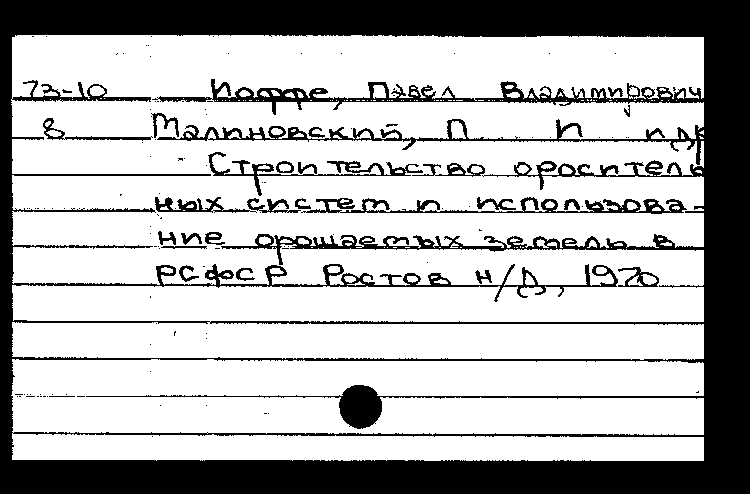 73-10 Иоффе, Павел Владимирович
8 Малиновский, П И и др
Строительство ороситель
ных систем и использова-
ние орошаемых земель в
РСФСР Ростов н/Д, 1970